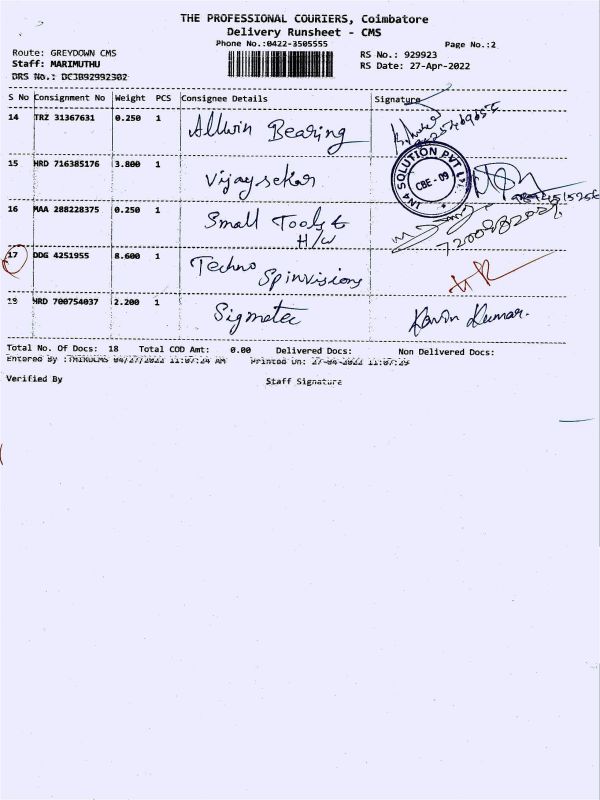 THE PROFESSIONAL COURIERS, Coimbatore
Delivery Runsheet - CMS
Phone No.:0422-3505555
Page No.:2
Route: GREYDOWN CMS
RS No.: 929923
Staff: MARIMUTHU
RS Date: 27-Apr-2022
DRS No.: DCJB92992302
S No Consignment No Weight PCS Consignee Details Signature
14 TRZ 31367631 0.250 1 Allwin Bearing
15 HRD 716385176 3.800 1 Vijay sekar
IN4 SOLUTION PVT LTD
CBE - 09
16 MAA 288228375 0.250 1 Small Tools &
H/W
17 DDG 4251955 8.600 1 Techno
Spinvisions
18 HRD 700754037 2.200 1 Sigmatec Kavin Kumar.
Total No. Of Docs: 18 Total COD Amt: 0.00 Delivered Docs: Non Delivered Docs:
Entered By :TMIRDCMS 04/27/2022 11:07:24 AM Printed On: 27-04-2022 11:07:29
Verified By Staff Signature